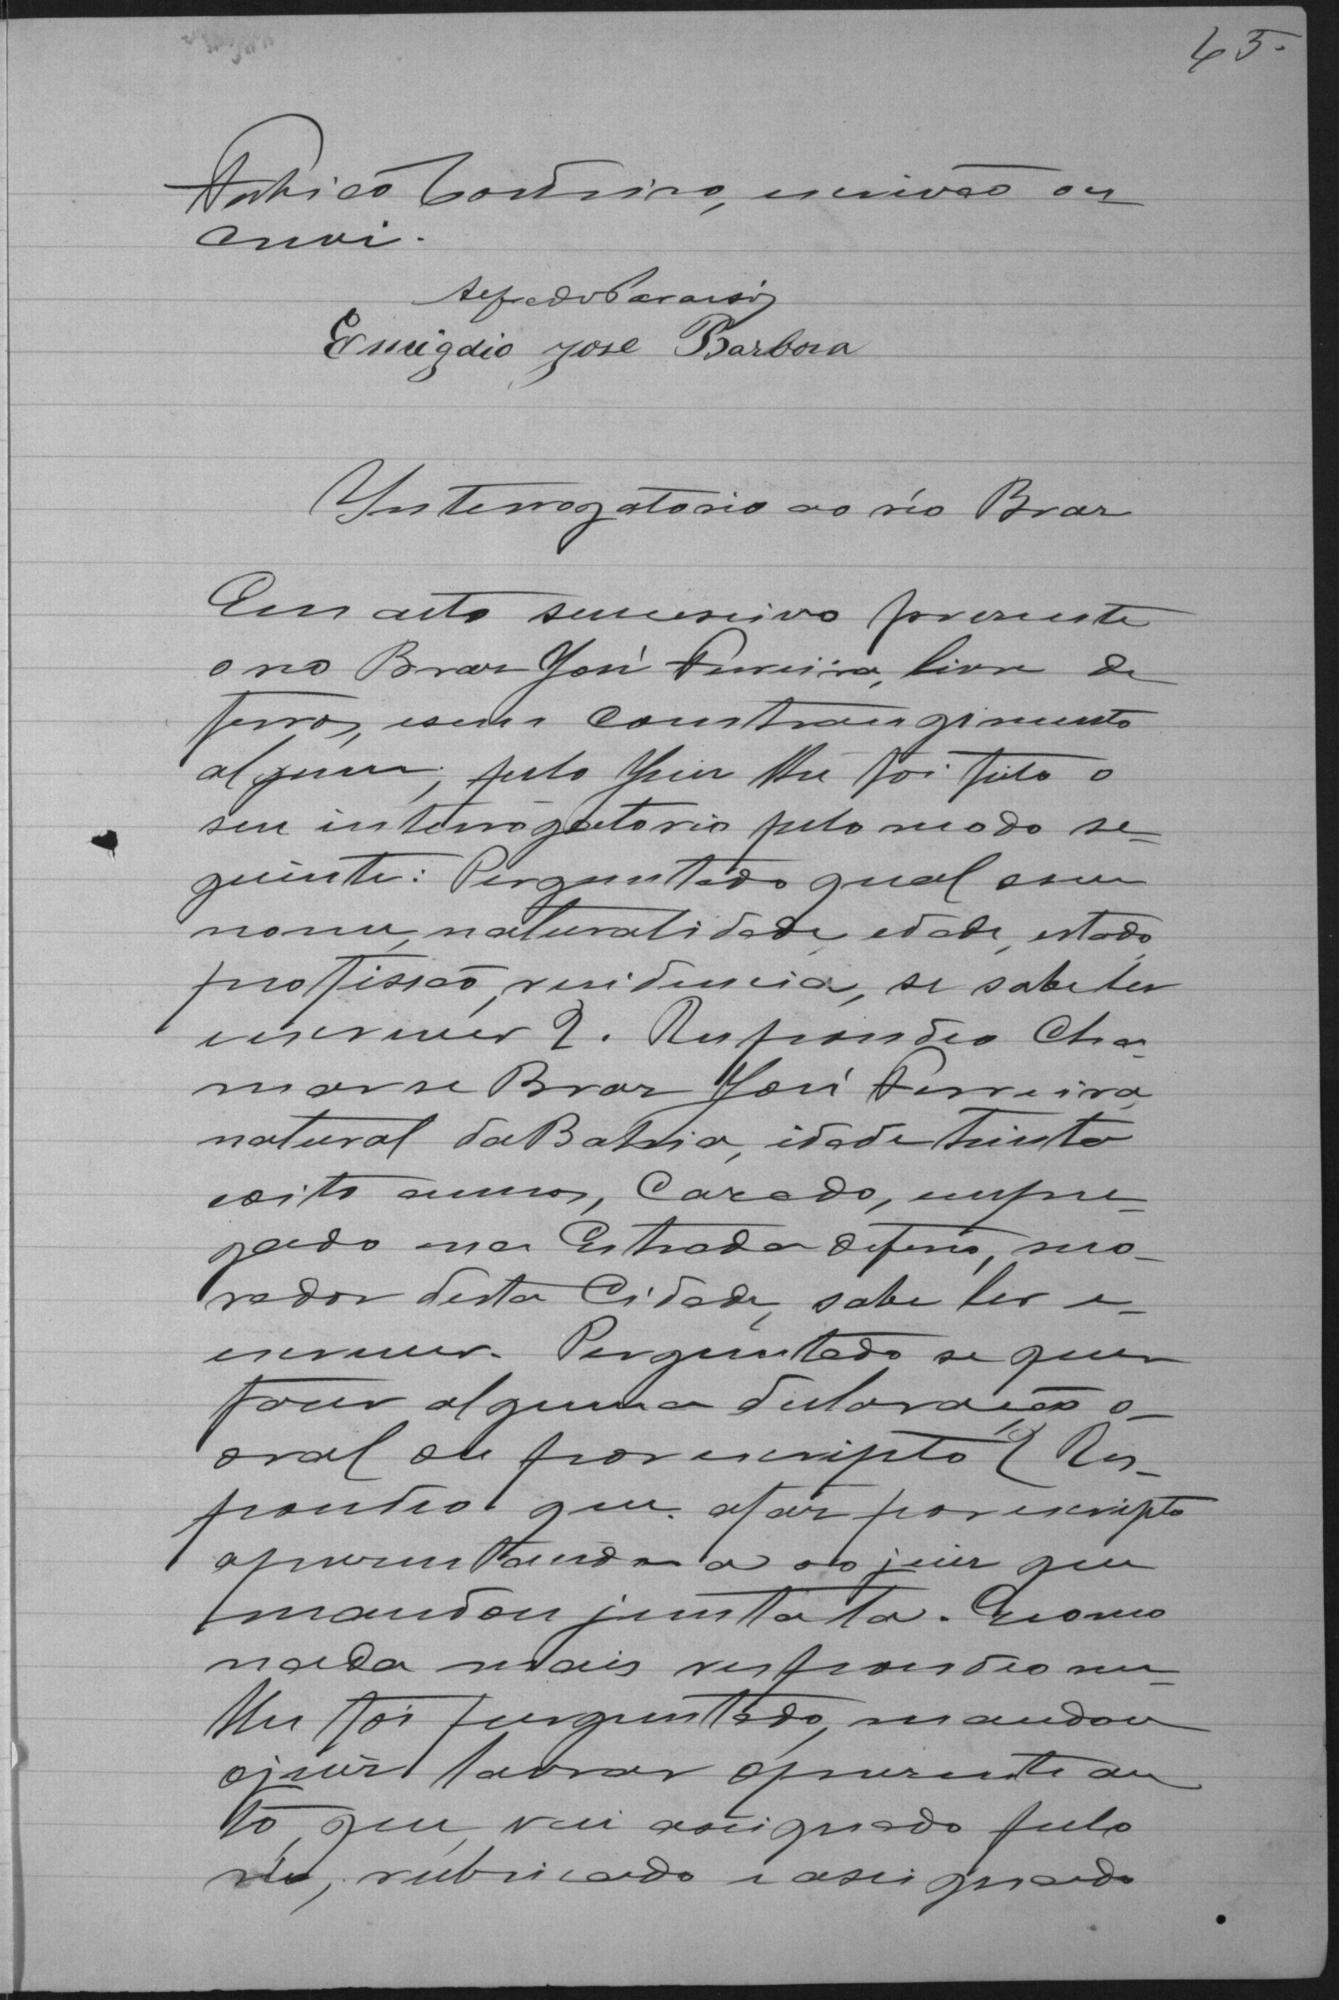 45.
Cordeiro, escrivão os
crevi.
Emigdio José Barbosa
Interrogatorio ao réo Braz
Em acto successivo presente
o reo Braz José Ferreira, livre de
ferros, e sem constrangimento
algum, pelo Juiz lhe foi feito o
seu interrogatorio pelo modo se-
guinte: Perguntado qual o seu
nome, naturalidade, edade, estado,
profissão, residencia, se sabe ler
escrever? . Respondeo cha-
mar se Braz José Ferreira,
natural da Bahia, idade trinta
e oito annos, Cazado, empre-
gado na Estrada de ferro, mo-
rador desta Cidade, sabe ler e-
escrever. Perguntado se quer
fazer alguma declaração o-
oral ou por escripto? Res-
pondeo que a faz por escripto
apresentando a ao juiz que
mandou junta la. E como
nada mais respondeo ne-
lhe foi perguntado, mandou
o juiz lavrar o presente au
to, que vai assignado pelo
réo, rubricado e assignado